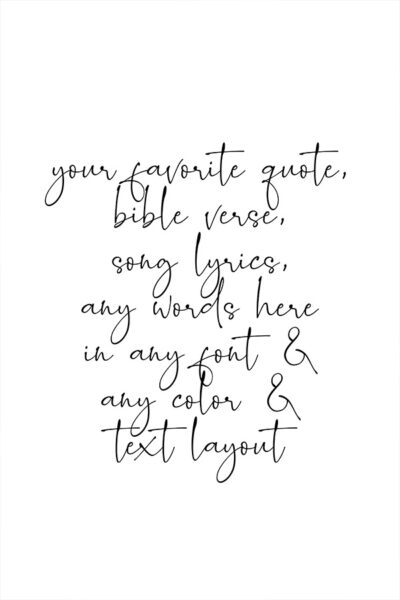 your favorite quote,
bible verse,
song lyrics,
any words here
in any font &
any color &
text layout